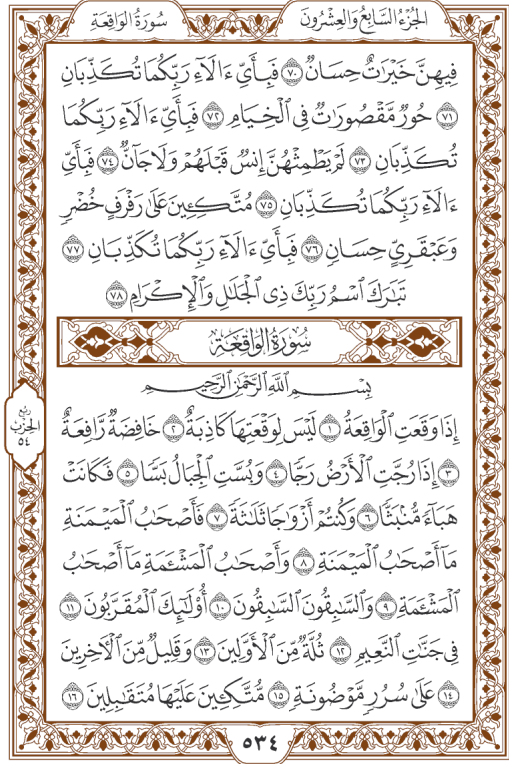 سُورَةُ الوَاقِعَةِ
الجُزْءُ السَّابِعُ وَالعِشْرُونَ
فِيهِنَّ خَيْرَٰتٌ حِسَانٌ ٧٠ فَبِأَيِّ ءَالَآءِ رَبِّكُمَا تُكَذِّبَانِ
٧١ حُورٌ مَّقْصُورَٰتٌ فِي الْخِيَامِ ٧٢ فَبِأَيِّ ءَالَآءِ رَبِّكُمَا
تُكَذِّبَانِ ٧٣ لَمْ يَطْمِثْهُنَّ إِنسٌ قَبْلَهُمْ وَلَا جَآنٌّ ٧٤ فَبِأَيِّ
ءَالَآءِ رَبِّكُمَا تُكَذِّبَانِ ٧٥ مُتَّكِـِٔينَ عَلَىٰ رَفْرَفٍ خُضْرٍ
وَعَبْقَرِيٍّ حِسَانٍ ٧٦ فَبِأَيِّ ءَالَآءِ رَبِّكُمَا تُكَذِّبَانِ ٧٧
تَبَٰرَكَ ٱسْمُ رَبِّكَ ذِي ٱلْجَلَٰلِ وَٱلْإِكْرَامِ ٧٨
سُورَةُ الوَاقِعَةِ
بِسْمِ ٱللَّهِ ٱلرَّحْمَٰنِ ٱلرَّحِيمِ
إِذَا وَقَعَتِ ٱلْوَاقِعَةُ ١ لَيْسَ لِوَقْعَتِهَا كَاذِبَةٌ ٢ خَافِضَةٌ رَّافِعَةٌ
٣ إِذَا رُجَّتِ ٱلْأَرْضُ رَجًّا ٤ وَبُسَّتِ ٱلْجِبَالُ بَسًّا ٥ فَكَانَتْ
هَبَآءً مُّنۢبَثًّا ٦ وَكُنتُمْ أَزْوَٰجًا ثَلَٰثَةً ٧ فَأَصْحَٰبُ ٱلْمَيْمَنَةِ
مَآ أَصْحَٰبُ ٱلْمَيْمَنَةِ ٨ وَأَصْحَٰبُ ٱلْمَشْـَٔمَةِ مَآ أَصْحَٰبُ
ٱلْمَشْـَٔمَةِ ٩ وَٱلسَّٰبِقُونَ ٱلسَّٰبِقُونَ ١٠ أُو۟لَٰٓئِكَ ٱلْمُقَرَّبُونَ ١١
فِي جَنَّٰتِ ٱلنَّعِيمِ ١٢ ثُلَّةٌ مِّنَ ٱلْأَوَّلِينَ ١٣ وَقَلِيلٌ مِّنَ ٱلْـَٔاخِرِينَ
١٤ عَلَىٰ سُرُرٍ مَّوْضُونَةٍ ١٥ مُّتَّكِـِٔينَ عَلَيْهَا مُتَقَٰبِلِينَ ١٦
رُبع
الحِزْب
٥٤
٥٣٤